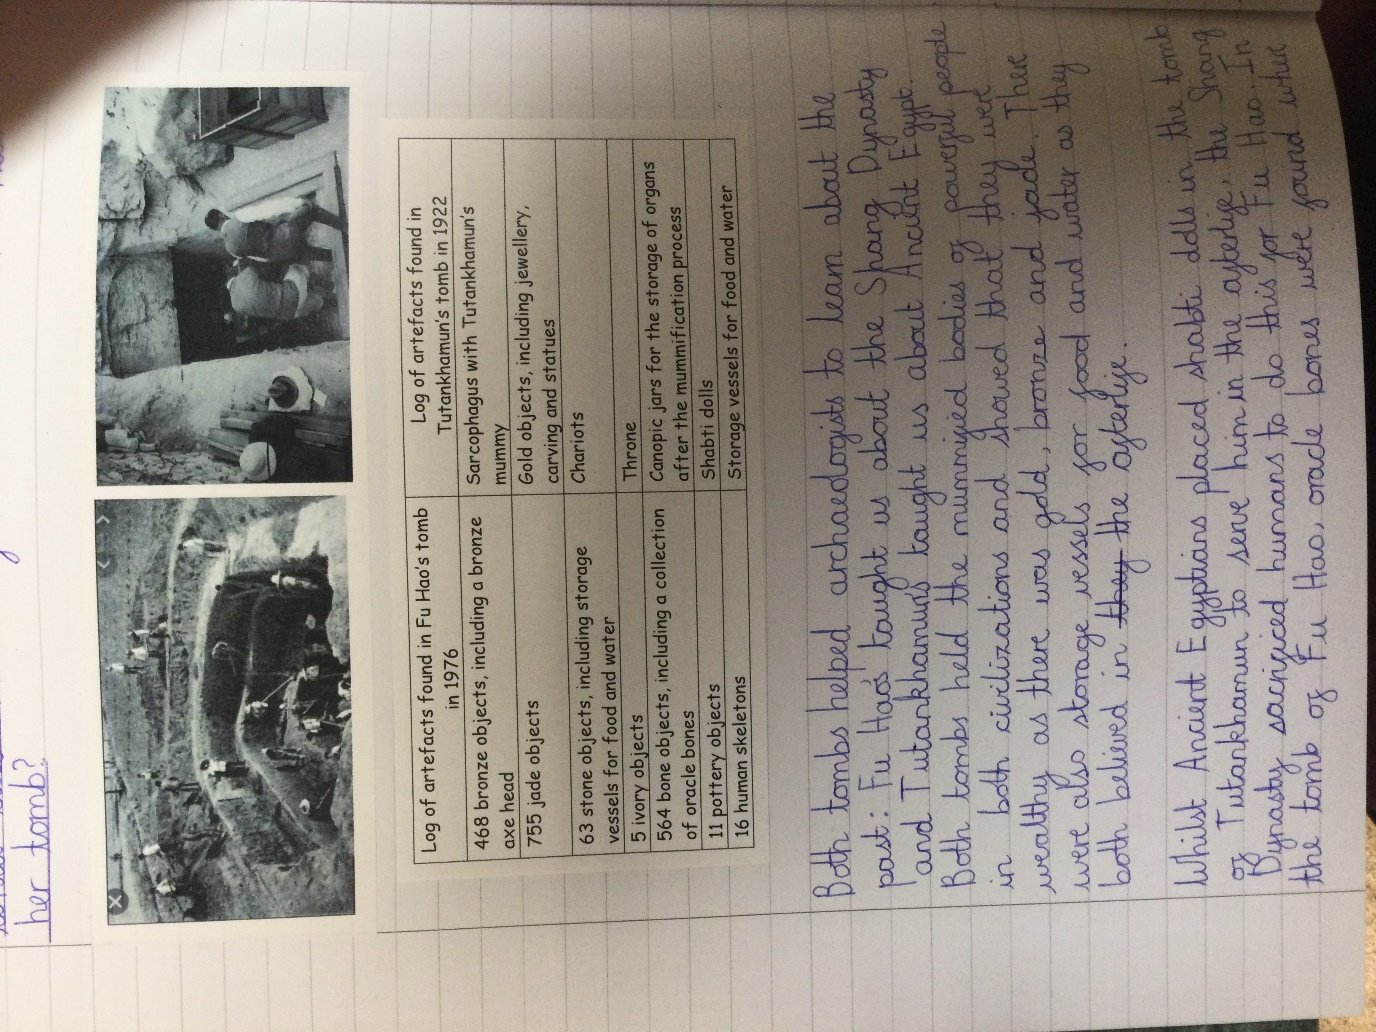 her tomb?
Log of artefacts found in Fu Hao's tomb
in 1976
Log of artefacts found in
Tutankhamun's tomb in 1922
468 bronze objects, including a bronze
axe head
Sarcophagus with Tutankhamun's
mummy
755 jade objects
Gold objects, including jewellery,
carving and statues
63 stone objects, including storage
vessels for food and water
Chariots
5 ivory objects
Throne
564 bone objects, including a collection
of oracle bones
Canopic jars for the storage of organs
after the mummification process
11 pottery objects
Shabti dolls
16 human skeletons
Storage vessels for food and water
Both tombs helped archaeologists to learn about the
past: Fu Hao's taught us about the Shang Dynasty
and Tutankhamun's taught us about Ancient Egypt.
Both tombs held the mummified bodies of powerful people
in both civilizations and showed that they were
wealthy as there was gold, bronze and jade. There
were also storage vessels for food and water as they
both believed in they the afterlife.
Whilst Ancient Egyptians placed shabti dolls in the tomb
of Tutankhamun to serve him in the afterlife, the Shang
Dynasty sacrificed humans to do this for Fu Hao. In
the tomb of Fu Hao, oracle bones were found when